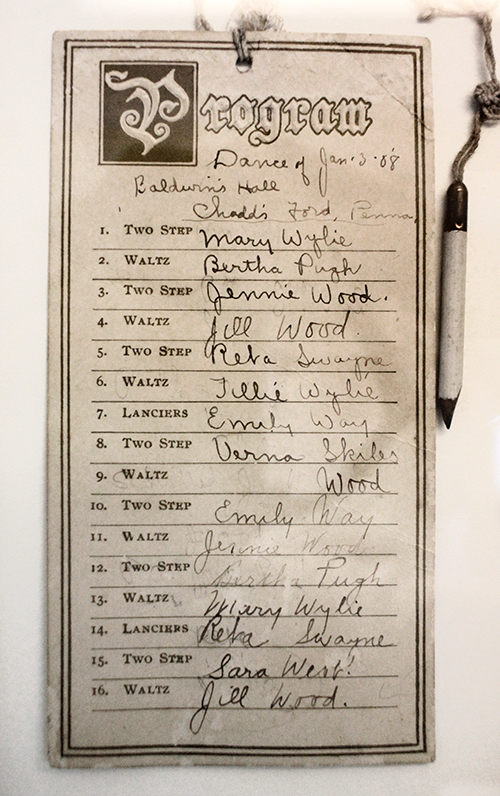 Program
Dance of Jan. 3. 08
Baldwin's Hall
Chadd's Ford, Penna.
1. TWO STEP Mary Wylie
2. WALTZ Bertha Pugh
3. TWO STEP Jennie Wood.
4. WALTZ Jill Wood.
5. TWO STEP Reba Swayne
6. WALTZ Tillie Wylie
7. LANCIERS Emily Way
8. TWO STEP Verna Skiles
9. WALTZ Wood
10. TWO STEP Emily Way
11. WALTZ Jennie Wood
12. TWO STEP Bertha Pugh
13. WALTZ Mary Wylie
14. LANCIERS Reba Swayne
15. TWO STEP Sara West.
16. WALTZ Jill Wood.